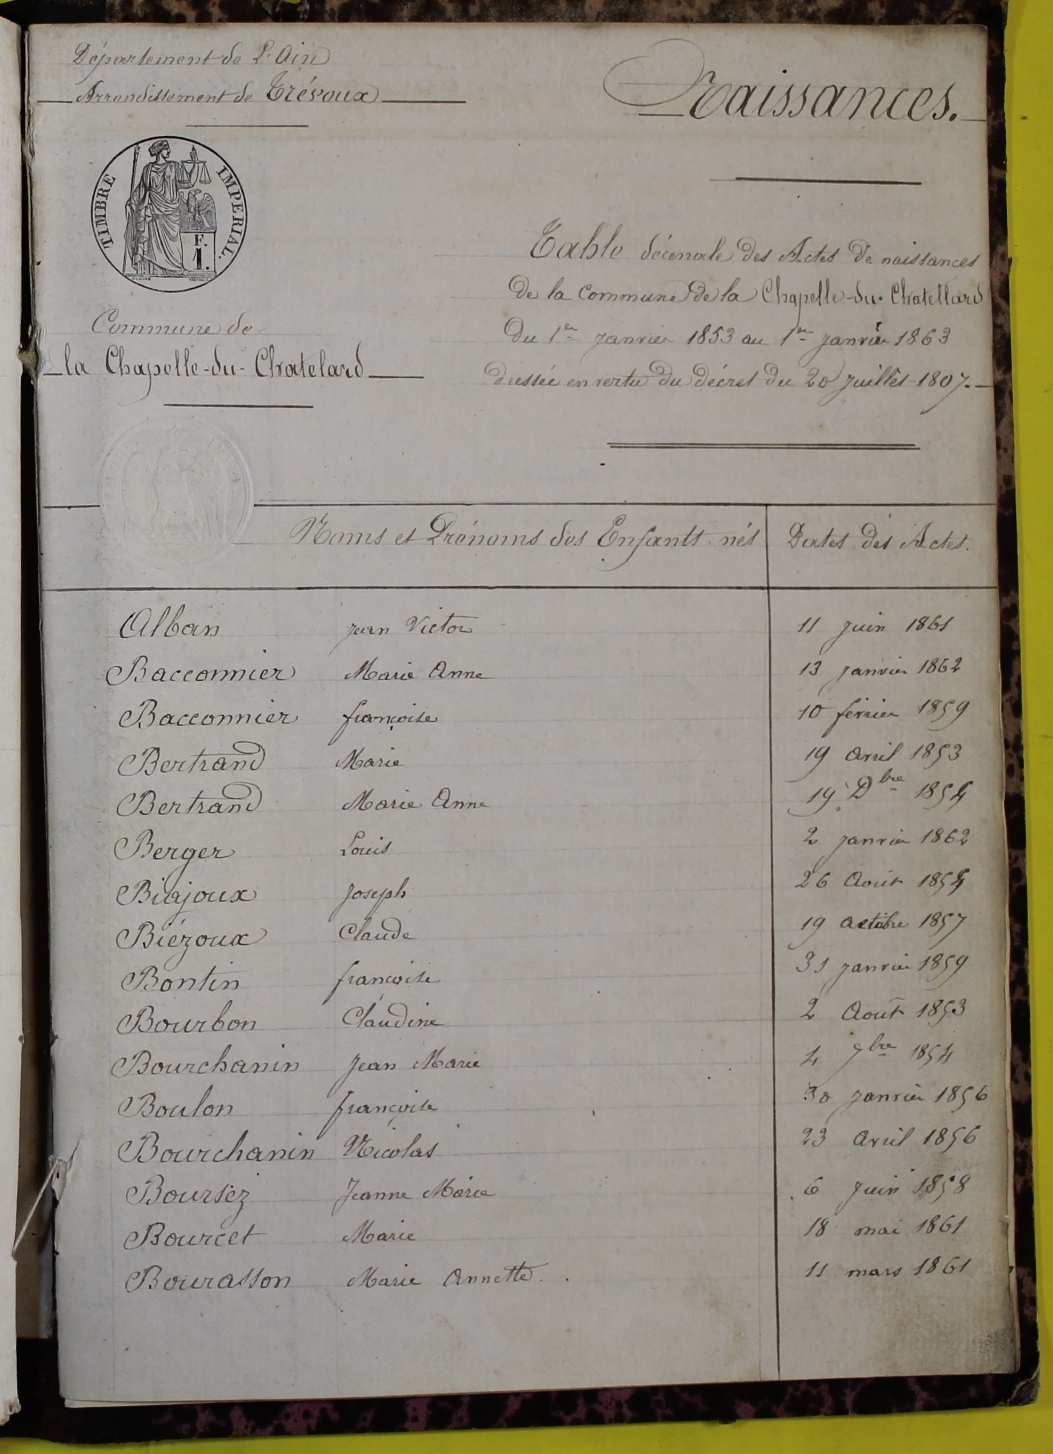 Département de l'Ain
Arrondissement de Trévoux
Naissances.
TIMBRE IMPERIAL.
F.
1.
Commune de
la Chapelle-du-Chatelard
Table décenale des Actes de naissances
de la commune de la Chapelle-du-Chatellard
du 1er janvier 1853 au 1er janvier 1863
dressée en vertu du décret du 20 juillet 1807.
Noms et Prénoms des Enfants nés Dates des Actes.
Alban Jean Victor 11 juin 1861
Bacconnier Marie Anne 13 janvier 1862
Bacconnier françoise 10 février 1859
Bertrand Marie 19 avril 1853
Bertrand Marie Anne 19 Dbre 1854
Berger Louis 2 janvier 1862
Biajoux Joseph 26 Août 1854
Biézoux Claude 19 octobre 1857
Bontin françoise 31 janvier 1859
Bourbon Claudine 2 Août 1853
Bourchanin Jean Marie 4 7bre 1854
Boulon françoise 30 janvier 1856
Bourchanin Nicolas 23 avril 1856
Boursez Jeanne Marie 6 juin 1858
Bourcet Marie 18 mai 1861
Bourasson Marie Annette 11 mars 1861